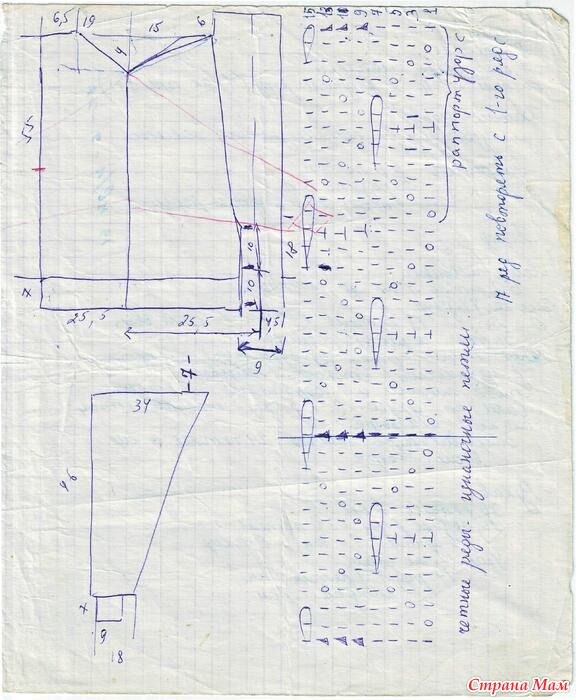 6,5
19
15
6
4
55
7
25,5
25,5
10
10
18
4,5
9
-7-
34
46
7
9
18
15
13
11
9
7
5
3
1
раппорт узора
17 ряд повторять с 1-го ряда
четные ряды - изнаночные петли.
Страна Мам